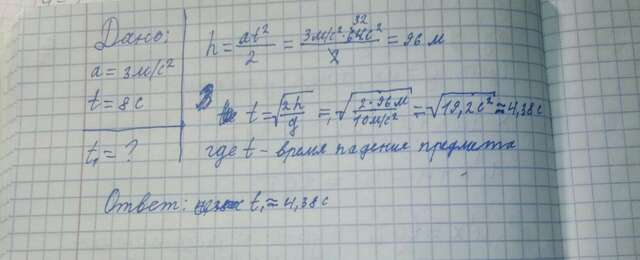 Дано:
a = 3 м/с²
t = 8 с
t₁ = ?
h = at²/2 = 3 м/с² · 64 с²/2 = 96 м
32
t = √(2h/g) = √(2·96 м/10 м/с²) = √(19,2 с²) ≈ 4,38 с
где t - время падение предмета
Ответ: t₁ ≈ 4,38 с